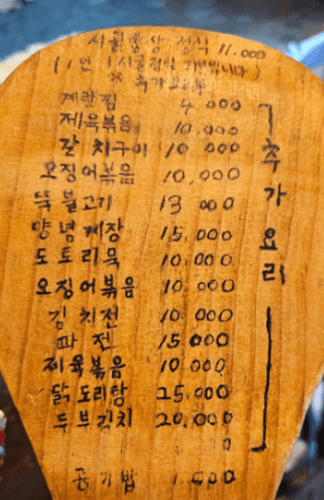 시골밥상 정식 11.000
(1인 1시골정식 기본입니다)
※ 추가요리
계란찜 4,000
제육볶음 10,000
갈치구이 10,000
오징어볶음 10,000
뚝불고기 13 000
양념게장 15,000
도토리묵 10,000
오징어볶음 10,000
김치전 10,000
파전 15,000
제육볶음 10,000
닭도리탕 25,000
두부김치 20,000
0
공기밥 1,000
추가요리